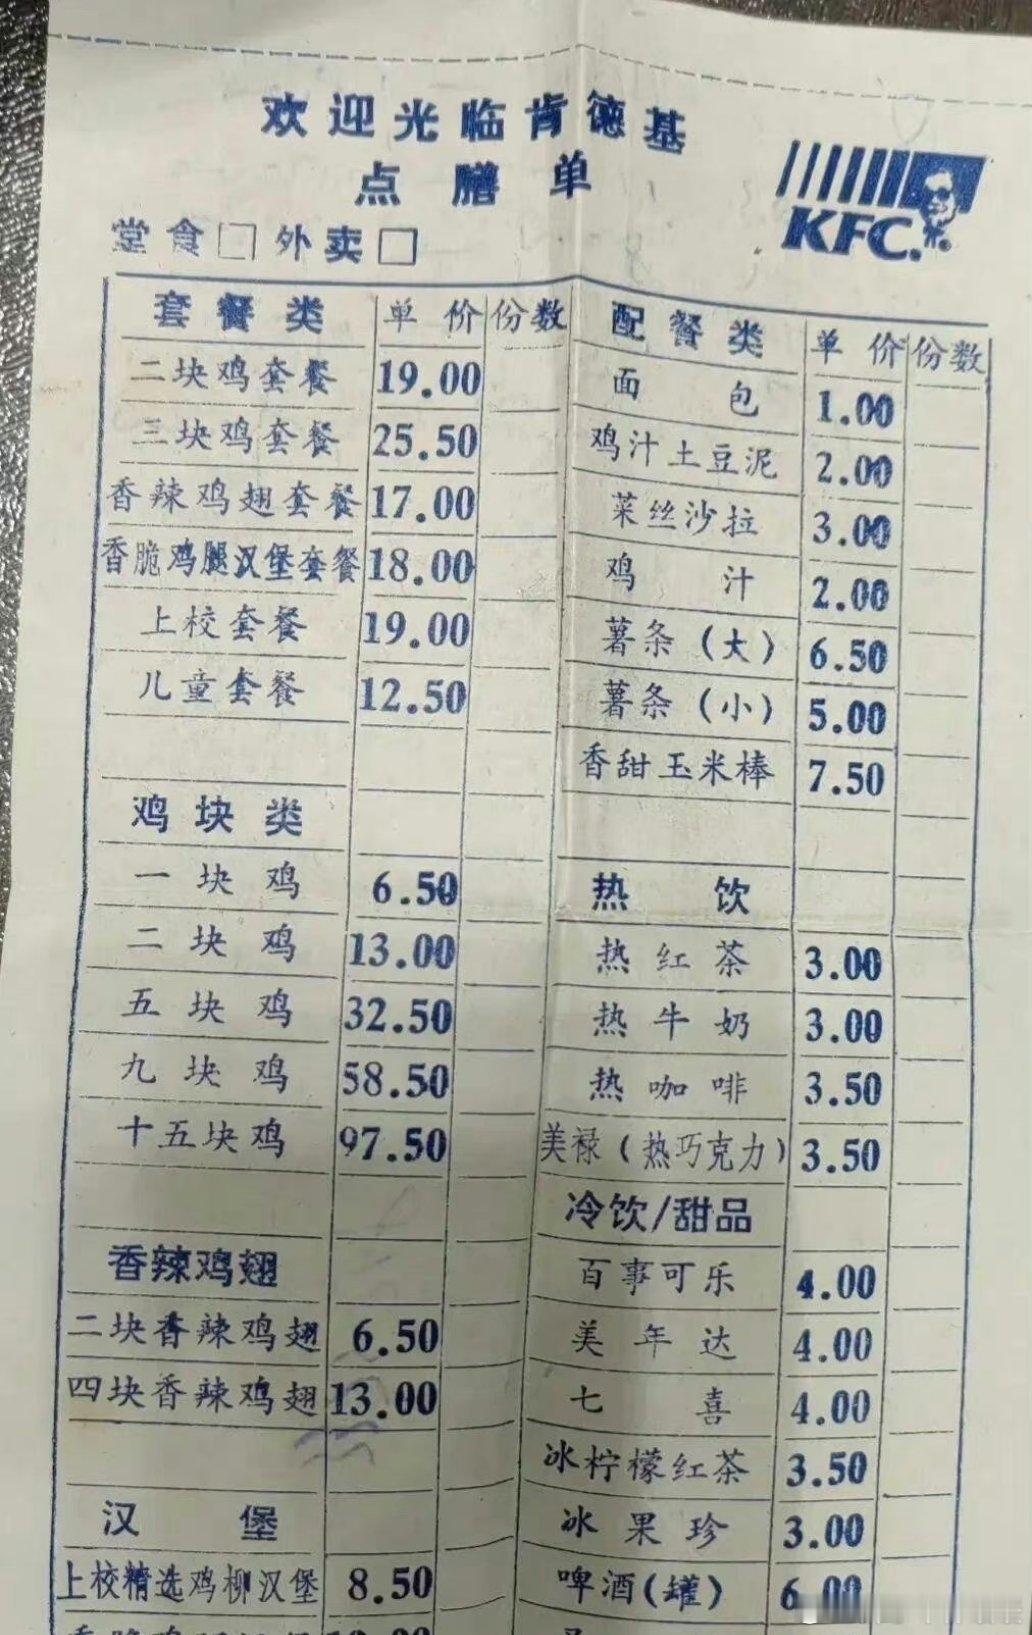 欢迎光临肯德基
点膳单
KFC.
堂食□ 外卖□
套餐类 单价 份数
二块鸡套餐 19.00
三块鸡套餐 25.50
香辣鸡翅套餐 17.00
香脆鸡腿汉堡套餐 18.00
上校套餐 19.00
儿童套餐 12.50
鸡块类
一块鸡 6.50
二块鸡 13.00
五块鸡 32.50
九块鸡 58.50
十五块鸡 97.50
香辣鸡翅
二块香辣鸡翅 6.50
四块香辣鸡翅 13.00
汉堡
上校精选鸡柳汉堡 8.50
配餐类 单价 份数
面包 1.00
鸡汁土豆泥 2.00
菜丝沙拉 3.00
鸡汁 2.00
薯条(大) 6.50
薯条(小) 5.00
香甜玉米棒 7.50
热饮
热红茶 3.00
热牛奶 3.00
热咖啡 3.50
美禄(热巧克力) 3.50
冷饮/甜品
百事可乐 4.00
美年达 4.00
七喜 4.00
冰柠檬红茶 3.50
冰果珍 3.00
啤酒(罐) 6.00